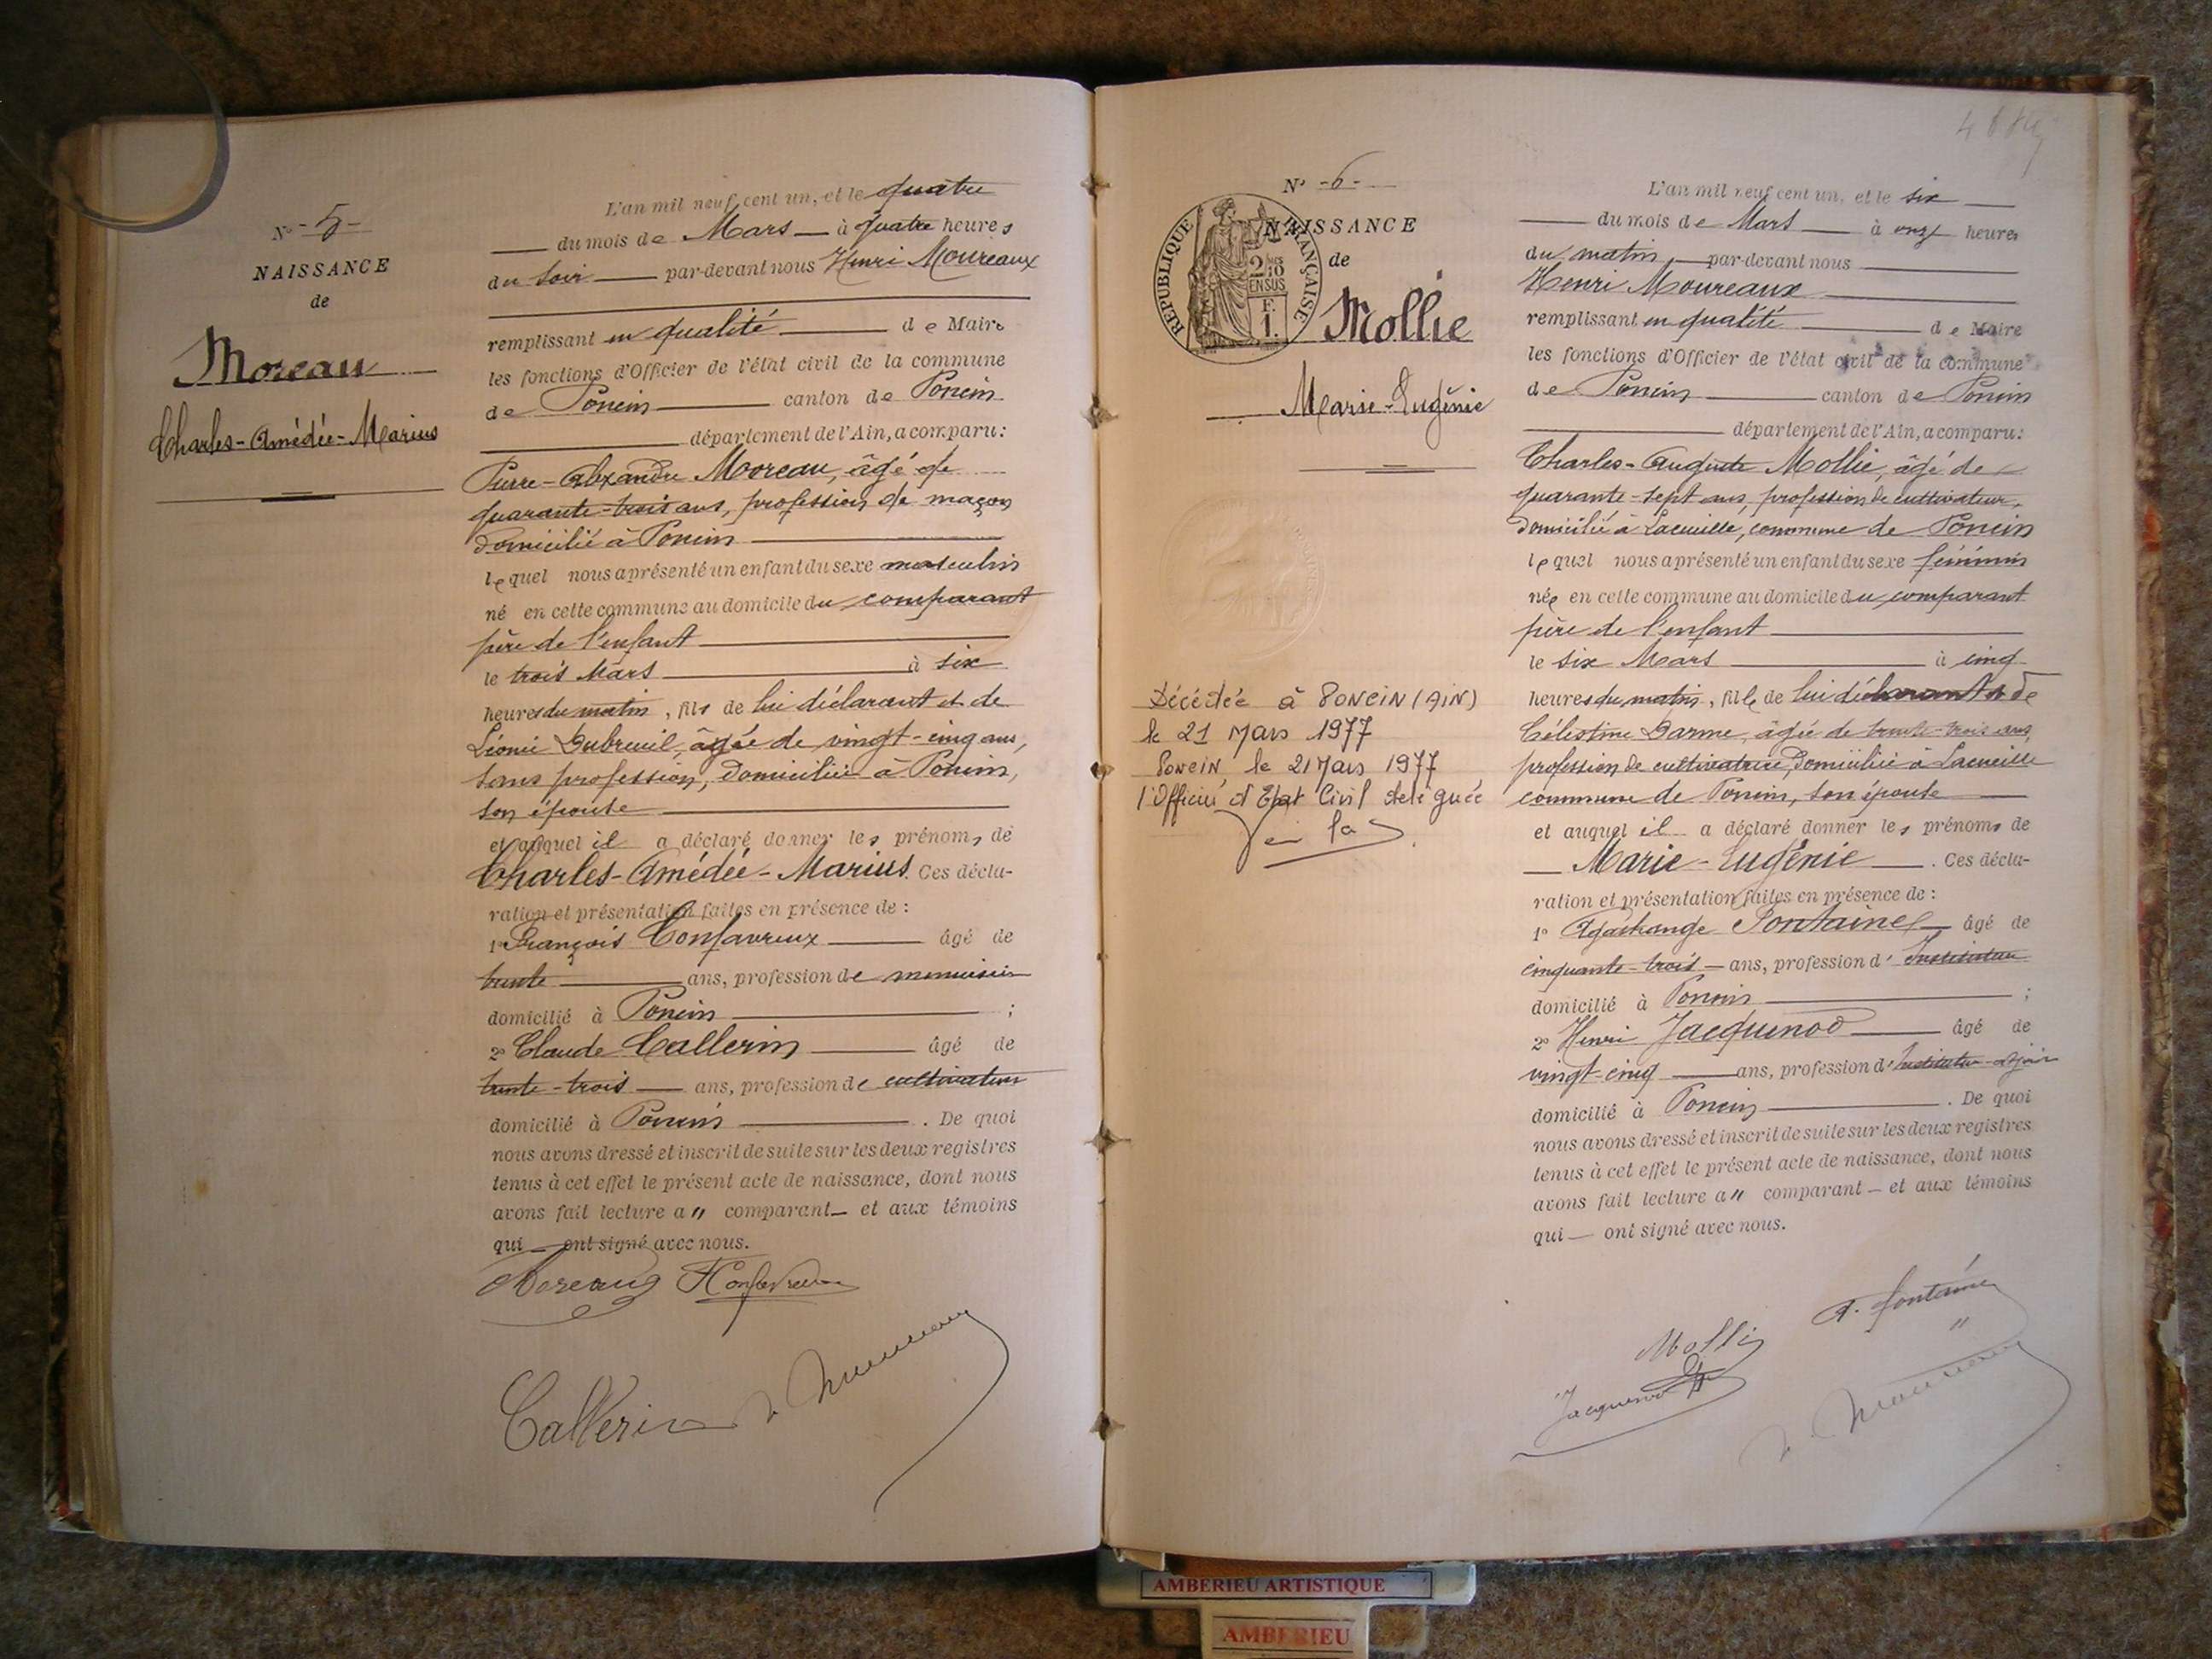 N° - 5 -
NAISSANCE
de
Moreau
Charles-Amédée-Marius
L'an mil neuf cent un, et le quatre
du mois de Mars à quatre heures
du soir par-devant nous Henri Moureaux
remplissant en qualité de Maire
les fonctions d'Officier de l'état civil de la commune
de Poncin canton de Poncin
département de l'Ain, a comparu :
Pierre-Alexandre Moreau, âgé de
quarante-trois ans, profession de maçon
domicilié à Poncin
lequel nous a présenté un enfant du sexe masculin
né en cette commune au domicile du comparant
père de l'enfant
le trois Mars à six
heures du matin, fils de lui déclarant et de
Léonie Dubreuil, âgée de vingt-cinq ans,
sans profession, domiciliée à Poncin,
son épouse
et auquel il a déclaré donner les prénoms de
Charles-Amédée-Marius. Ces décla-
ration et présentation faites en présence de :
1° François Confavreux âgé de
trente ans, profession de menuisier
domicilié à Poncin ;
2° Claude Callerin âgé de
trente-trois ans, profession de cultivateur
domicilié à Poncin . De quoi
nous avons dressé et inscrit de suite sur les deux registres
tenus à cet effet le présent acte de naissance, dont nous
avons fait lecture a " comparant et aux témoins
qui ont signé avec nous.
Moreau Confavreux
Callerin
N° - 6 -
NAISSANCE
de
RÉPUBLIQUE FRANÇAISE
2/10
EN SUS
F.
1.
Mollie
Marie-Eugénie
Décédée à PONCIN (AIN)
le 21 Mars 1977
PONCIN, le 21 Mars 1977
l'Officier d'Etat Civil déléguée
L'an mil neuf cent un, et le six
du mois de Mars à onze heures
du matin par-devant nous
Henri Moureaux
remplissant en qualité de Maire
les fonctions d'Officier de l'état civil de la commune
de Poncin canton de Poncin
département de l'Ain, a comparu :
Charles-Auguste Mollie, âgé de
quarante-sept ans, profession de cultivateur,
domicilié à Lacueille, commune de Poncin
lequel nous a présenté un enfant du sexe féminin
née en cette commune au domicile du comparant
père de l'enfant
le six Mars à cinq
heures du matin, fille de lui déclarant et de
Célestine Darme, âgée de trente-trois ans,
profession de cultivatrice, domiciliée à Lacueille
commune de Poncin, son épouse
et auquel il a déclaré donner les prénoms de
Marie-Eugénie . Ces décla-
ration et présentation faites en présence de :
1° Agathange Fontaine âgé de
cinquante-trois ans, profession d'Instituteur
domicilié à Poncin ;
2° Henri Jacquenod âgé de
vingt-cinq ans, profession d'Instituteur-adjoint
domicilié à Poncin . De quoi
nous avons dressé et inscrit de suite sur les deux registres
tenus à cet effet le présent acte de naissance, dont nous
avons fait lecture a " comparant et aux témoins
qui ont signé avec nous.
A. Fontaine
Mollie
Jacquenod
AMBERIEU ARTISTIQUE
AMBERIEU